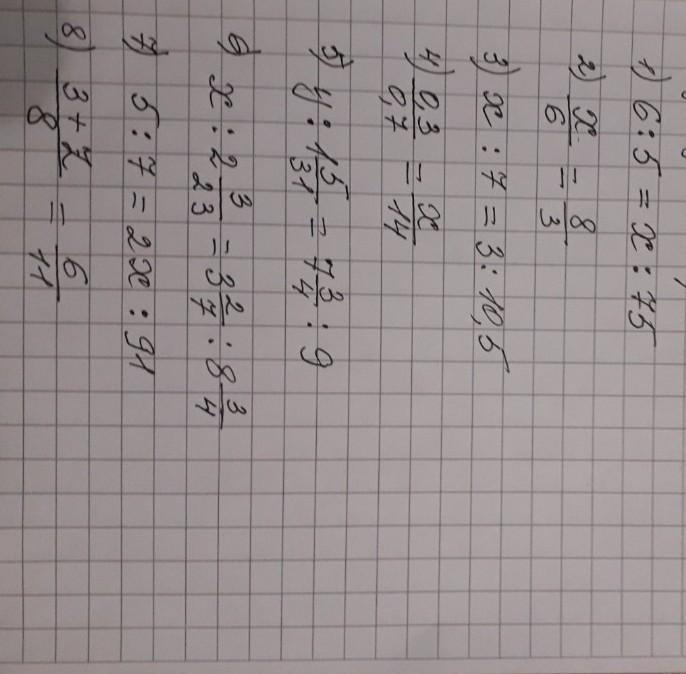 1) 6 : 5 = x : 75
2) x/6 = 8/3
3) x : 7 = 3 : 10,5
4) 0,3/0,7 = x/14
5) y : 1 5/31 = 7 3/4 : 9
6) x : 2 3/23 = 3 2/7 : 8 3/4
7) 5 : 7 = 2x : 91
8) 3+z/8 = 6/11